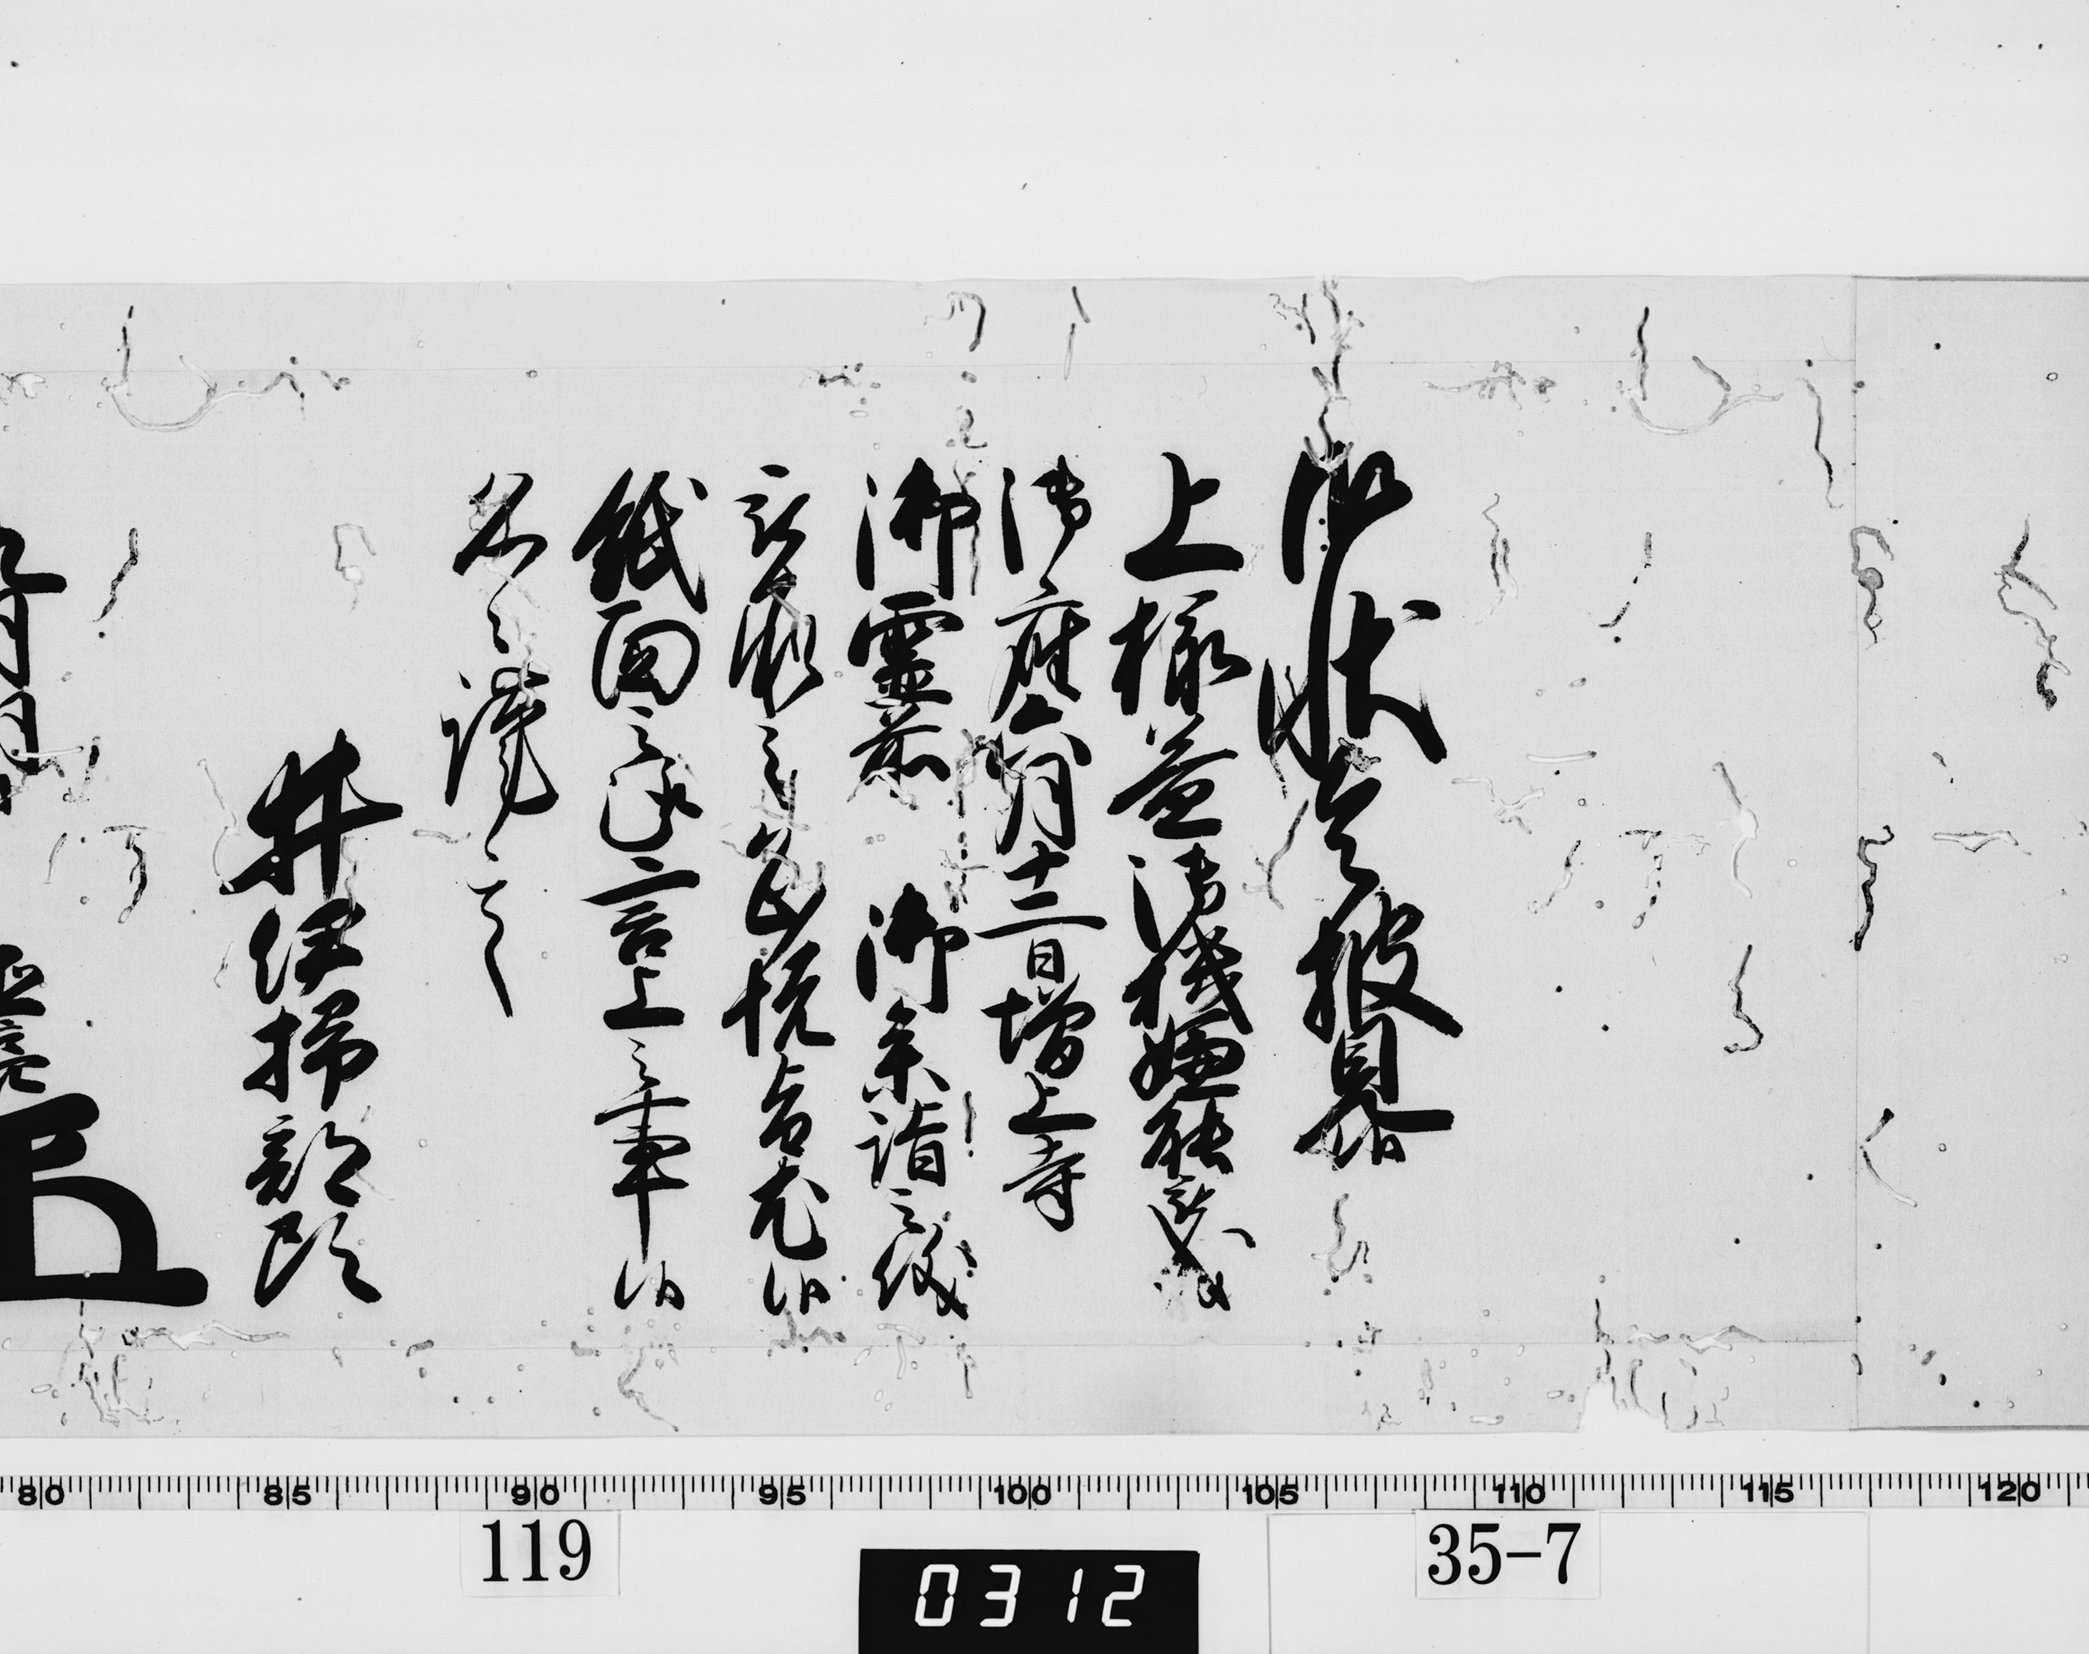 御状令披見候
上様益御機嫌能被成
御座去月十二日増上寺
御霊前 御参詣之儀
被承之恐悦旨尤候
紙面之趣言上之事候
恐々謹言
井伊掃部頭
80 85 90 95 100 105 110 115 120
119
0312
35-7